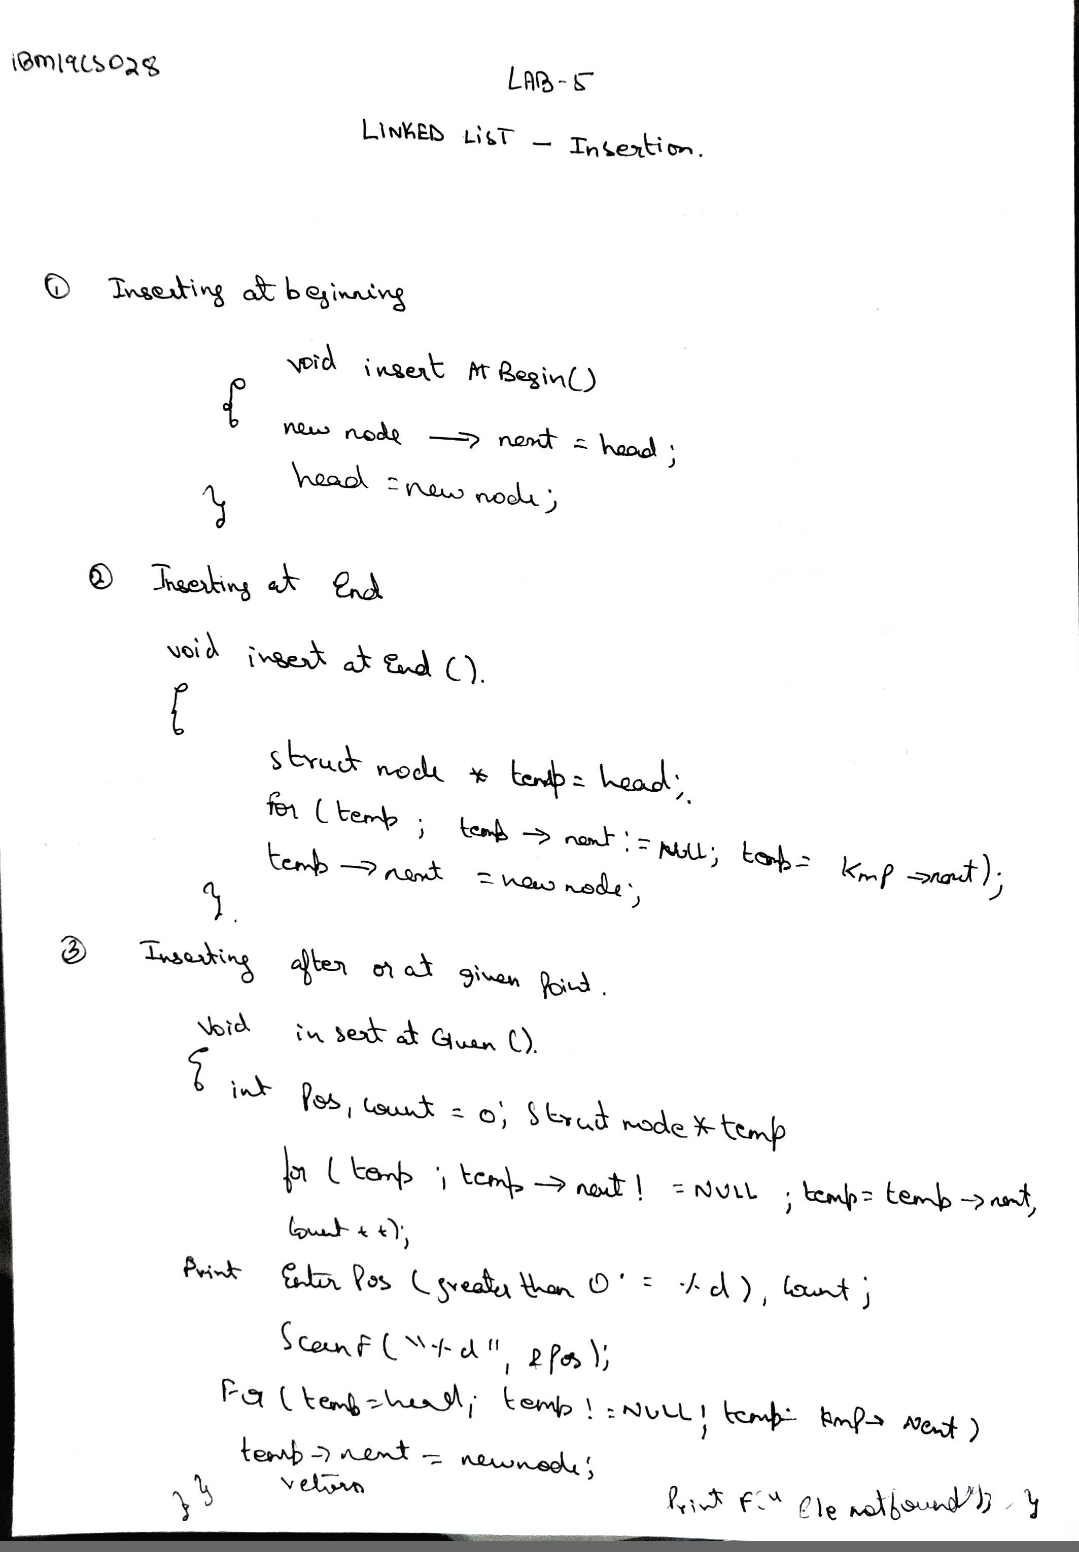 1BM19CS028
LAB-5
LINKED LIST - Insertion.
① Inserting at beginning
void insert At Begin()
{
new node → next = head;
head = new node;
}
② Inserting at End
void insert at End ().
{
struct node * temp = head;
for (temp ; temp → next != NULL; temp = temp → next);
temp → next = new node;
}.
③ Inserting after or at given Point.
Void in sert at Given ().
{ int Pos, count = 0; Struct node * temp
for ( temp ; temp → next ! = NULL ; temp = temp → next,
Count + +);
Print Enter Pos (greater than 0 = %d), Count;
Scanf ("%d", &Pos);
For (temp = head; temp ! = NULL; temp = temp → Next)
temp → next = newnode;
return
} } Print F " Ele not found"); }